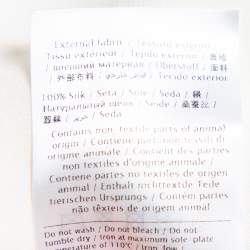 External fabric / Tessuto esterno /
Tissu extérieur / Tejido exterior / 表地
/ внешний материал / Oberstoff / 面料
/ 外部布料 / / Tecido exterior
100% Silk / Seta / Soie / Seda / 絹 /
Натуральный шелк / Seide / 桑蚕丝 /
蠶絲 / حرير / Seda
Contains non-textile parts of animal
origin / Contiene parti non tessili di
origine animale / Contient des parties
non textiles d'origine animale /
Contiene partes no textiles de origen
animal / Enthält nichttextile Teile
tierischen Ursprungs / Contém partes
não têxteis de origem animal
Do not wash / Do not bleach / Do not
tumble dry / Iron at maximum sole plate
temperature of 110°C / Iron